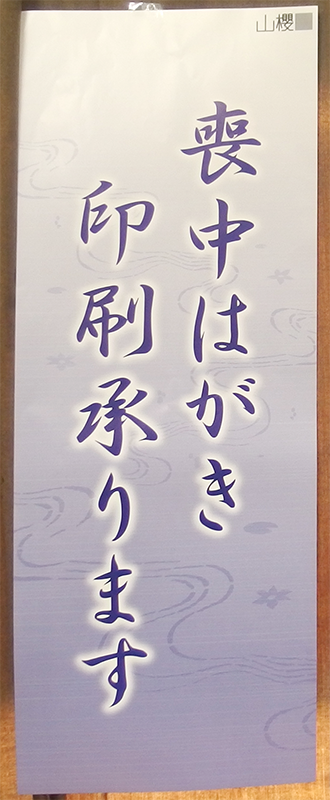 山櫻
喪中はがき
印刷承ります